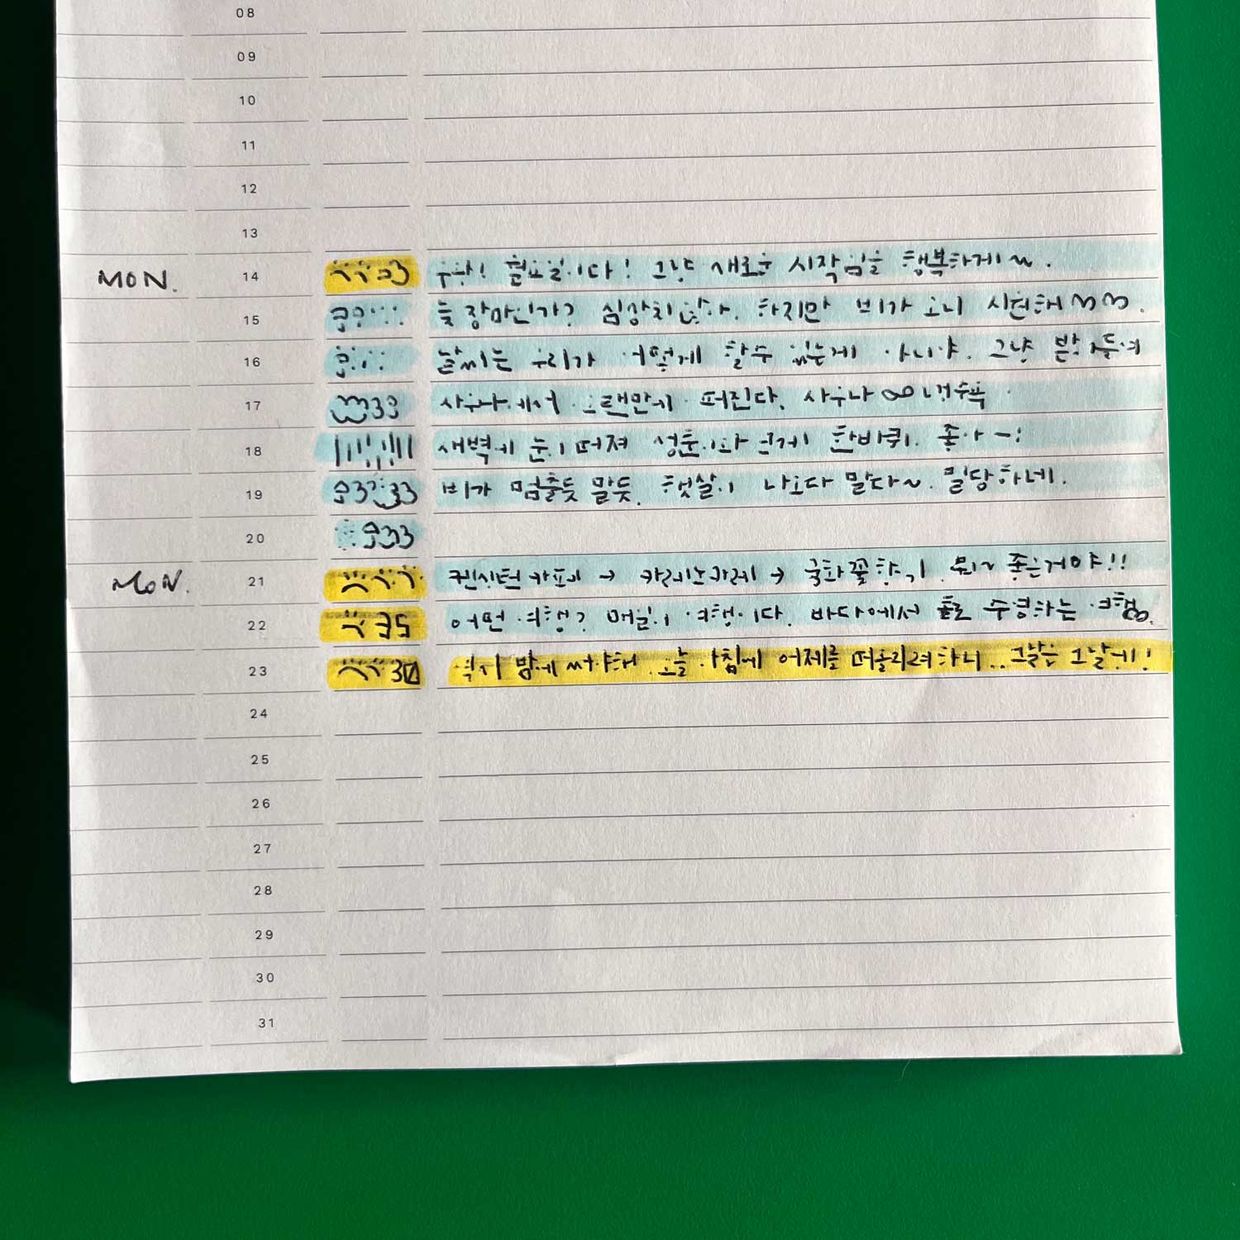 08
09
10
11
12
13
MON. 14 우와! 월요일이다! 그냥 새로운 시작임을 행복하게~.
15 늦장마인가? 심상치않아. 하지만 비가 오니 시원해~~.
16 날씨는 우리가 어떻게 할수 있는게 아니야. 그냥 받아들여
17 사우나에서 오랜만에 퍼진다. 사우나 ∞ 냉수욕
18 새벽에 눈이 떠져 성훈이와 크게 한바퀴. 좋아—!
19 비가 멈출듯 말듯. 햇살이 나오다 말다~. 밀당하네.
20
MON. 21 켄싱턴 카페 → 카레 → 국화꽃향기. 뭐~ 좋은거야!!
22 어떤 여행? 매일이 여행이다. 바다에서 홀로 수영하는 여행.
23 역시 밤에 써야해. 오늘 아침에 어제를 떠올리려하니.. 그날은 그날에!
24
25
26
27
28
29
30
31